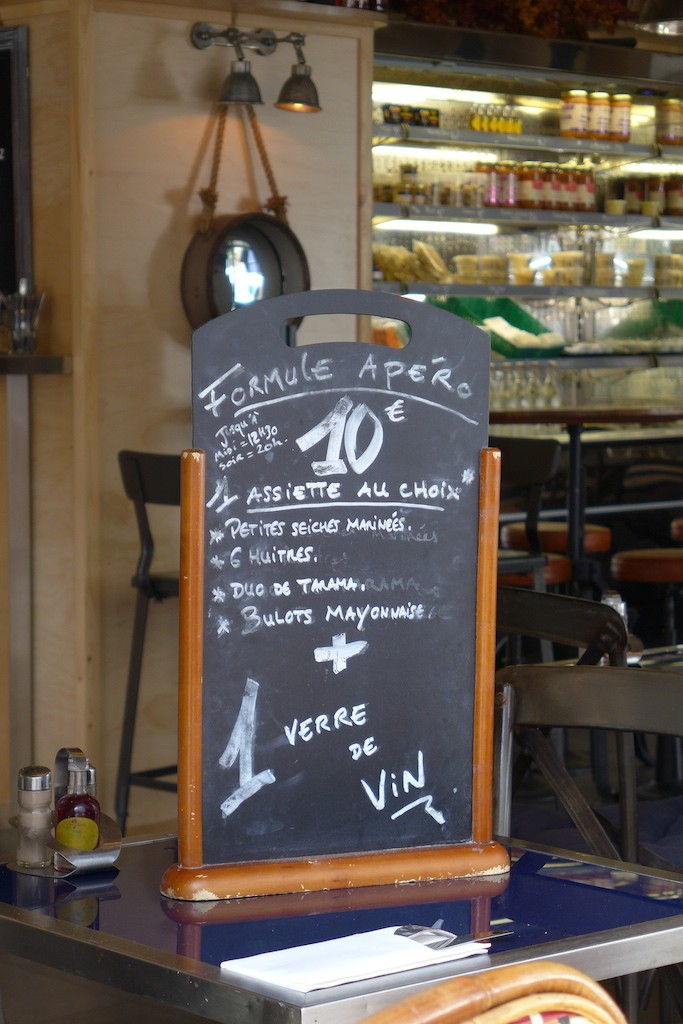 FORMULE APÉRO
JUSQU'À
MIDI = 12H30
SOIR = 20h.
10€
1 ASSIETTE AU CHOIX*
* PETITES SEICHES MARINÉES.
* 6 HUITRES.
* DUO DE TARAMA.
* BULOTS MAYONNAISE
+
1 VERRE
DE
VIN